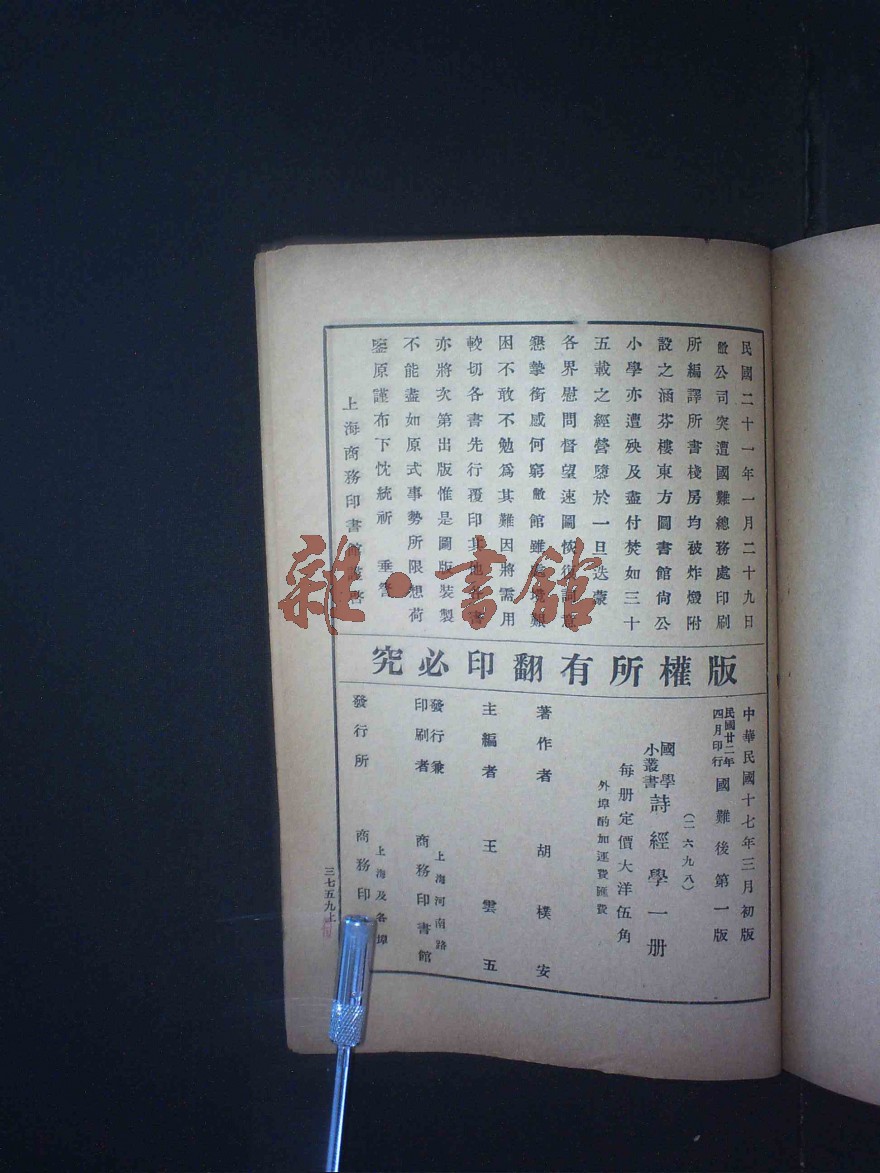 民國二十一年一月二十九日
敝公司突遭國難總務處印刷
所編譯所書棧房均被炸燬附
設之涵芬樓東方圖書館尙公
小學亦遭殃及盡付焚如三十
五載之經營隳於一旦迭蒙
各界慰問督望速圖恢復詞意
懇摯銜感何窮敝館雖處境艱
困不敢不勉爲其難因將需用
較切各書先行覆印其他各書
亦將次第出版惟是圖版裝製
不能盡如原式事勢所限想荷
鑒原謹布下忱統祈 垂詧
上海商務印書館謹啓
版權所有翻印必究
中華民國十七年三月初版
民國廿二年四月印行國難後第一版
(二六九八)
國學小叢書 詩經學一册
每册定價大洋伍角
外埠酌加運費匯費
著作者 胡樸安
主編者 王雲五
發行兼印刷者 上海河南路 商務印書館
發行所 上海及各埠 商務印
三七五九上
雜·書館